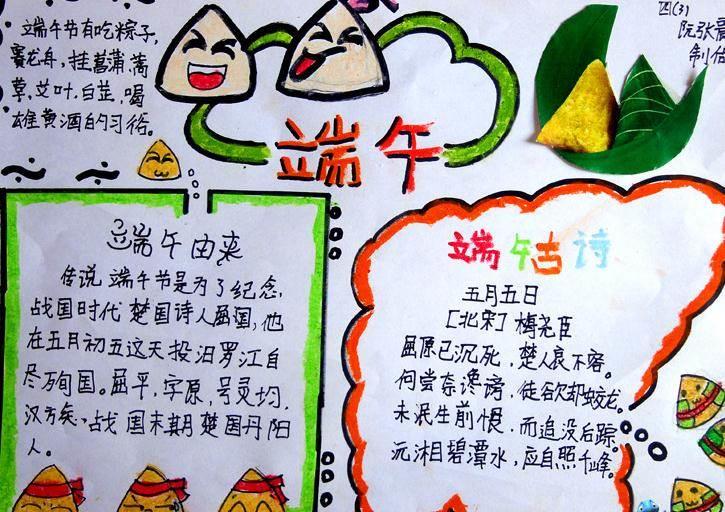 端午节有吃粽子,
赛龙舟,挂菖蒲,蒿
草,艾叶,白芷,喝
雄黄酒的习俗。
四(3)
阮张
制作
端午
端午由来
传说端午节是为了纪念,
战国时代楚国诗人屈国,他
在五月初五这天投汨罗江自
尽万询国。屈平,字原,号灵均,
汉方矣,战国末期楚国丹阳
人。
端午古诗
五月五日
[北宋]梅尧臣
屈原已沉死,楚人哀不容。
何尝奈谗谤,徒欲却蛟龙。
未泯生前恨,而追没后踪。
沅湘碧潭水,应自照千峰。